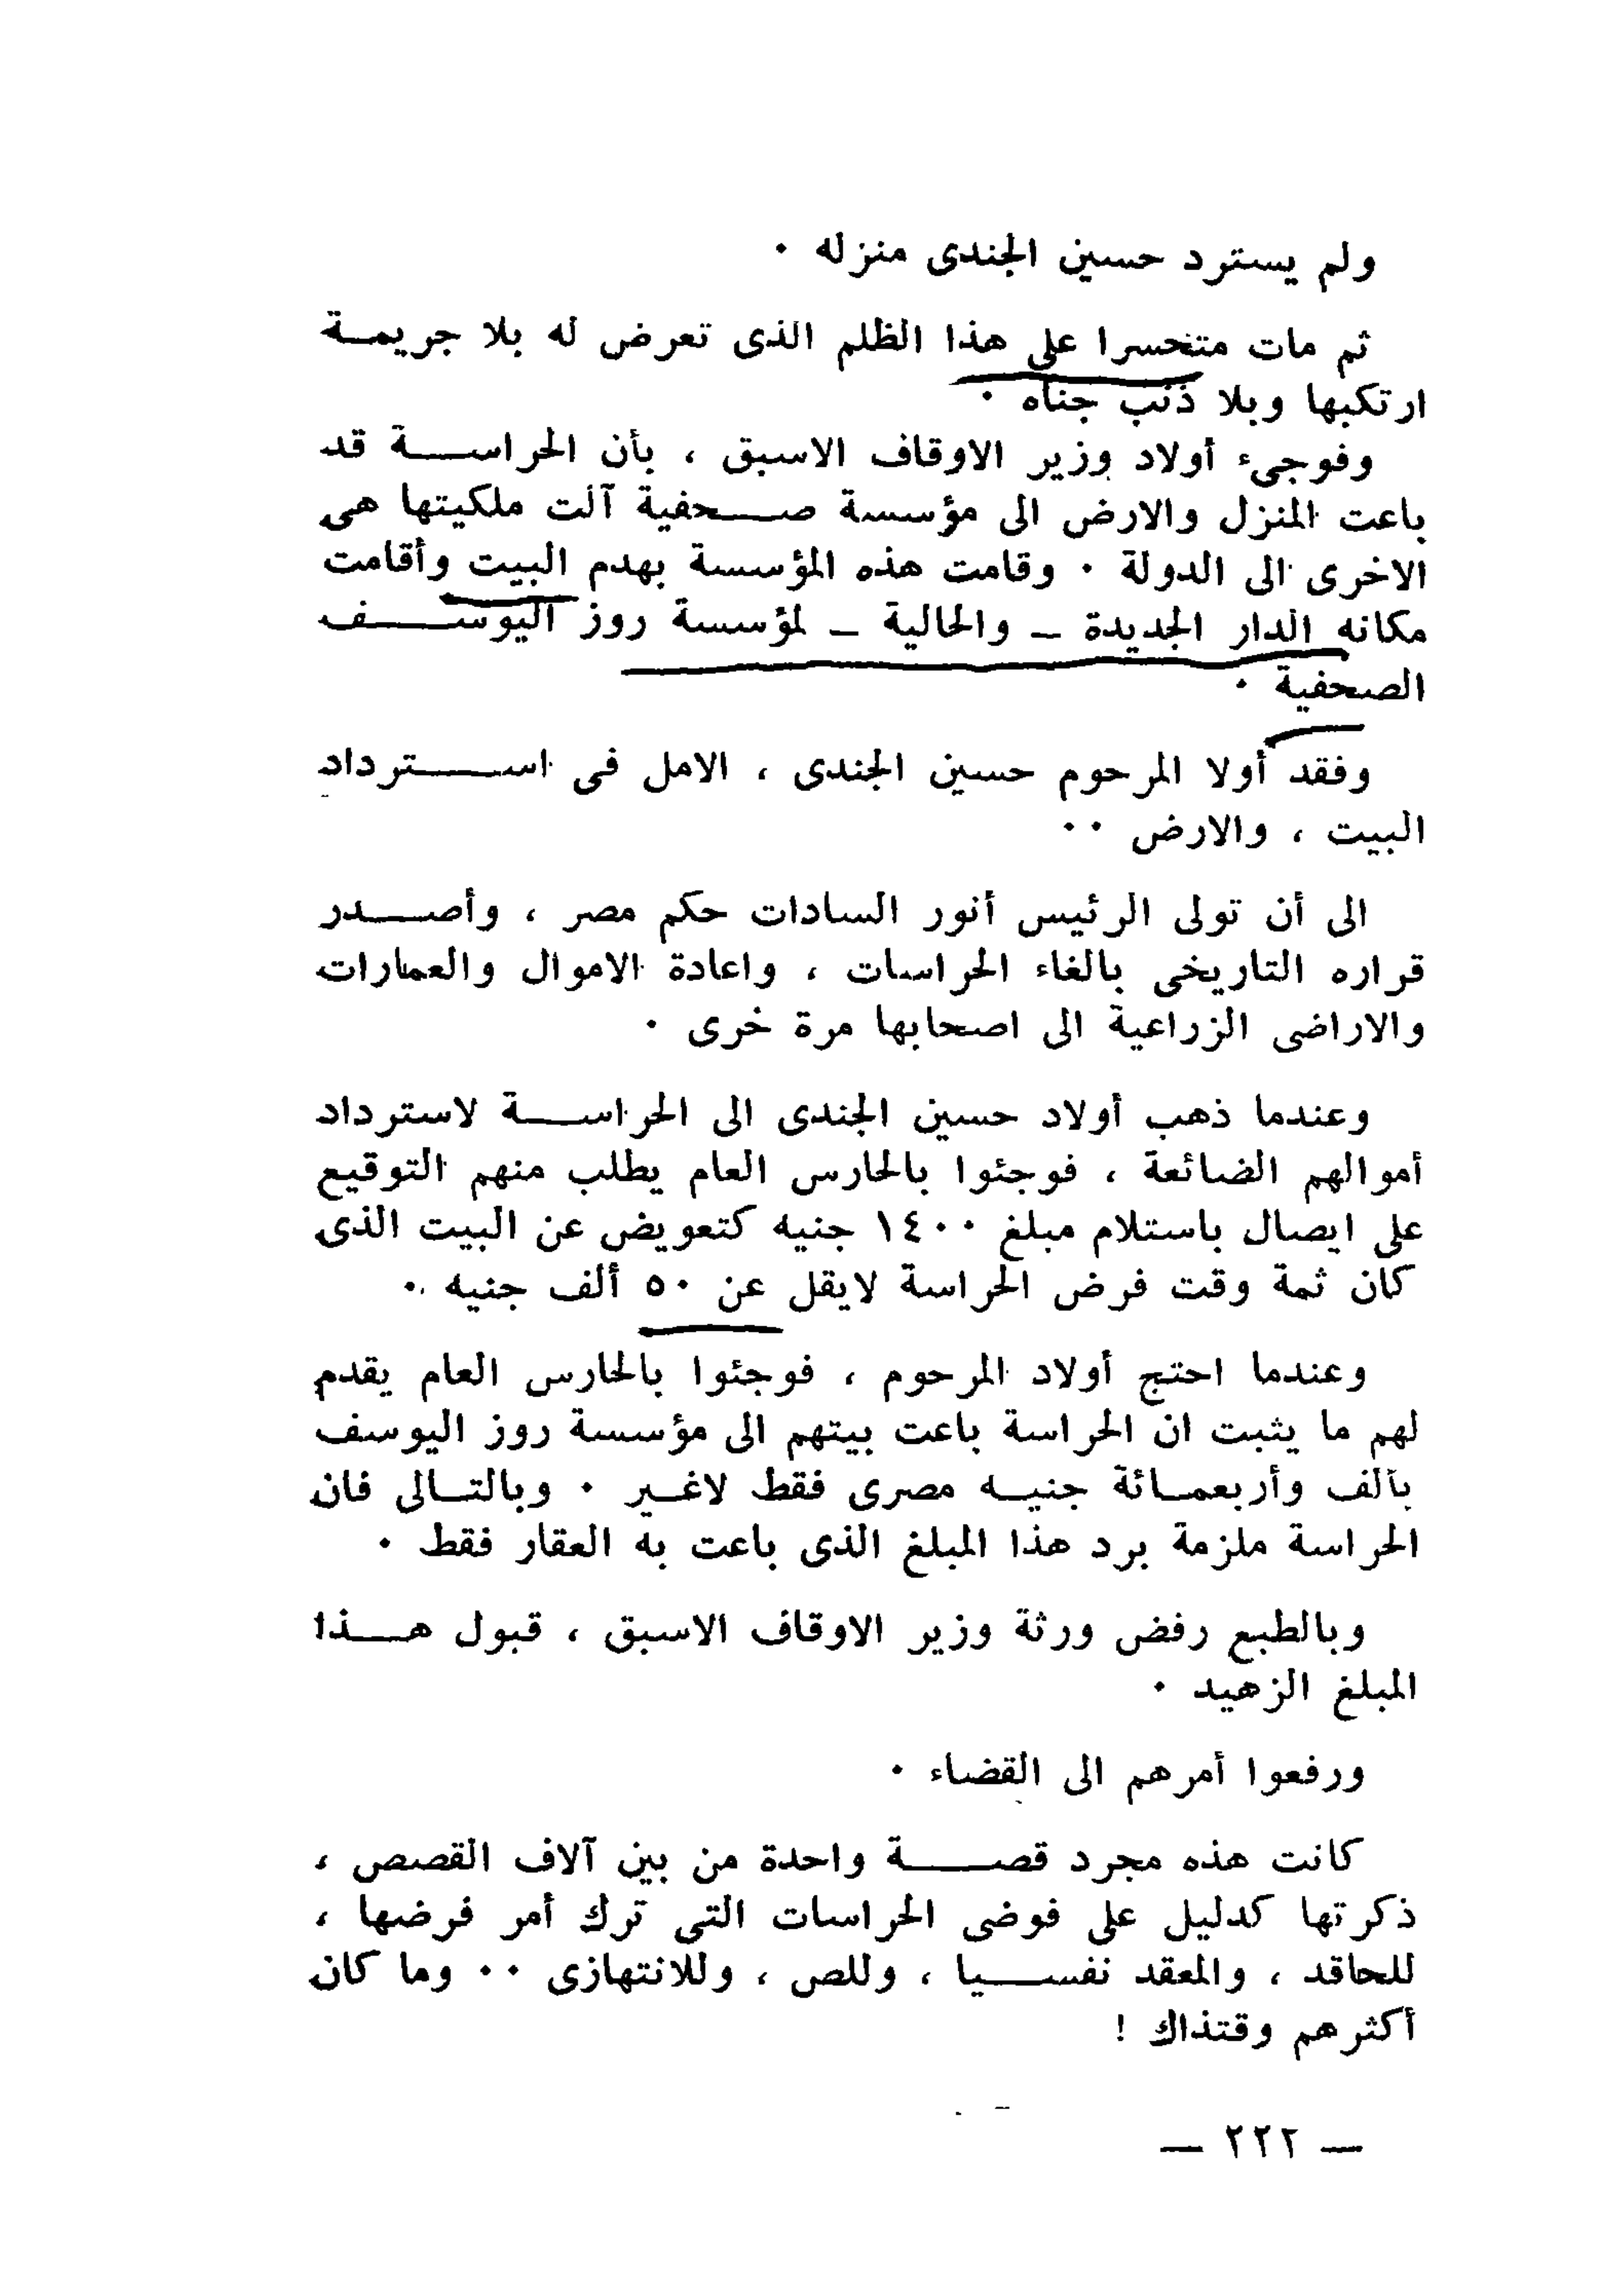 ولم يسترد حسين الجندى منزله .
ثم مات متحسرا على هذا الظلم الذى تعرض له بلا جريمة
ارتكبها وبلا ذنب جناه .
وفوجىء أولاد وزير الاوقاف الاسبق ، بأن الحراسة قد
باعت المنزل والارض الى مؤسسة صحفية آلت ملكيتها هى
الاخرى الى الدولة . وقامت هذه المؤسسة بهدم البيت وأقامت
مكانه الدار الجديدة – والحالية – لمؤسسة روز اليوسف
الصحفية .
وفقد أولا المرحوم حسين الجندى ، الامل فى استرداد
البيت ، والارض ..
الى أن تولى الرئيس أنور السادات حكم مصر ، وأصدر
قراره التاريخى بالغاء الحراسات ، واعادة الاموال والعمارات
والاراضى الزراعية الى اصحابها مرة خرى .
وعندما ذهب أولاد حسين الجندى الى الحراسة لاسترداد
أموالهم الضائعة ، فوجئوا بالحارس العام يطلب منهم التوقيع
على ايصال باستلام مبلغ ١٤٠٠ جنيه كتعويض عن البيت الذى
كان ثمة وقت فرض الحراسة لايقل عن ٥٠ ألف جنيه ..
وعندما احتج أولاد المرحوم ، فوجئوا بالحارس العام يقدم
لهم ما يثبت ان الحراسة باعت بيتهم الى مؤسسة روز اليوسف
بألف وأربعمائة جنيه مصرى فقط لاغير . وبالتالى فان
الحراسة ملزمة برد هذا المبلغ الذى باعت به العقار فقط .
وبالطبع رفض ورثة وزير الاوقاف الاسبق ، قبول هذا
المبلغ الزهيد .
ورفعوا أمرهم الى القضاء .
كانت هذه مجرد قصة واحدة من بين آلاف القصص ،
ذكرتها كدليل على فوضى الحراسات التى ترك أمر فرضها ،
للحاقد ، والمعقد نفسيا ، وللص ، وللانتهازى .. وما كان
أكثرهم وقتذاك !
— ٢٢٢ —